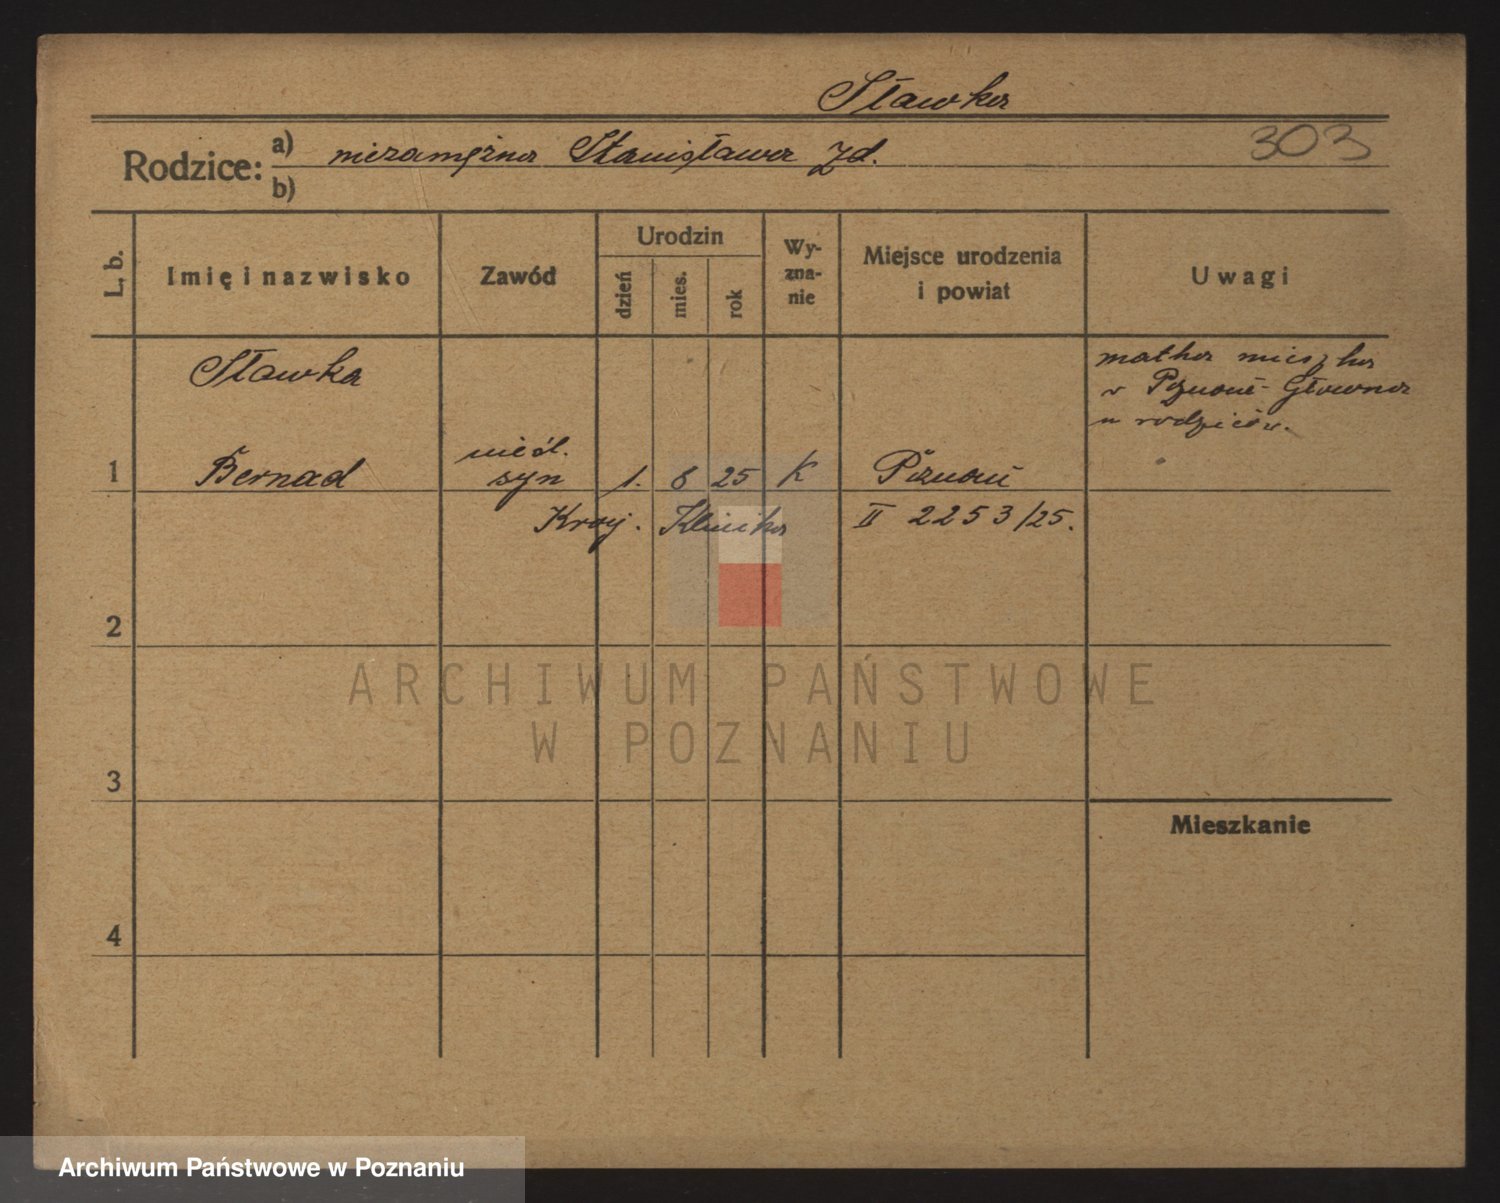 Sławka
Rodzice:
a) niezamężna Stanisława Zd.
303
b)
L. b.
Imię i nazwisko
Zawód
Urodzin
dzień
mies.
rok
Wy-
zna-
nie
Miejsce urodzenia
i powiat
Uwagi
Sławka
matka mieszka
w Poznań-Główna
u rodziców.
1
Bernad
nieśl.
syn
1. 6 25 K Poznań
Kraj. Klinika II 2253/25.
2
ARCHIWUM PAŃSTWOWE
W POZNANIU
3
Mieszkanie
4
Archiwum Państwowe w Poznaniu